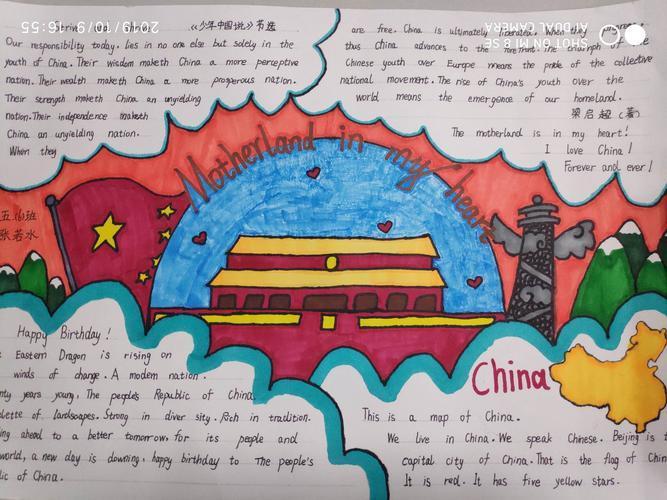 《少年中国说》节选
Our responsibility today. lies in no one else but solely in the
youth of China. Their wisdom maketh China a more perceptive
nation. Their wealth maketh China a more prosperous nation.
Their strength maketh China an unyielding
nation. Their independence maketh
China an unyielding nation.
When they
are free. China is ultimately liberated. When they
thus China advances to the
Chinese youth over Europe means the pride of the collective
national movement. The rise of China's youth over the
world means the emergence of our homeland.
梁启超(著)
The motherland is in my heart!
I love China!
Forever and ever!
Motherland in my heart
五(4)班
张若水
Happy Birthday!
Eastern Dragon is rising on
winds of change. A modern nation.
years young, The people's Republic of China,
of landscapes. Strong in diver sity. Rich in tradition.
ahead to a better tomorrow, for its people and
world, a new day is downing, happy birthday to The people's
of China.
China
This is a map of China.
We live in China. We speak Chinese. Beijing is
capital city of China. That is the flag of
It is red. It has five yellow stars.
SHOT ON MI 8 SE
AI DUAL CAMERA
2019/10/9 16:55